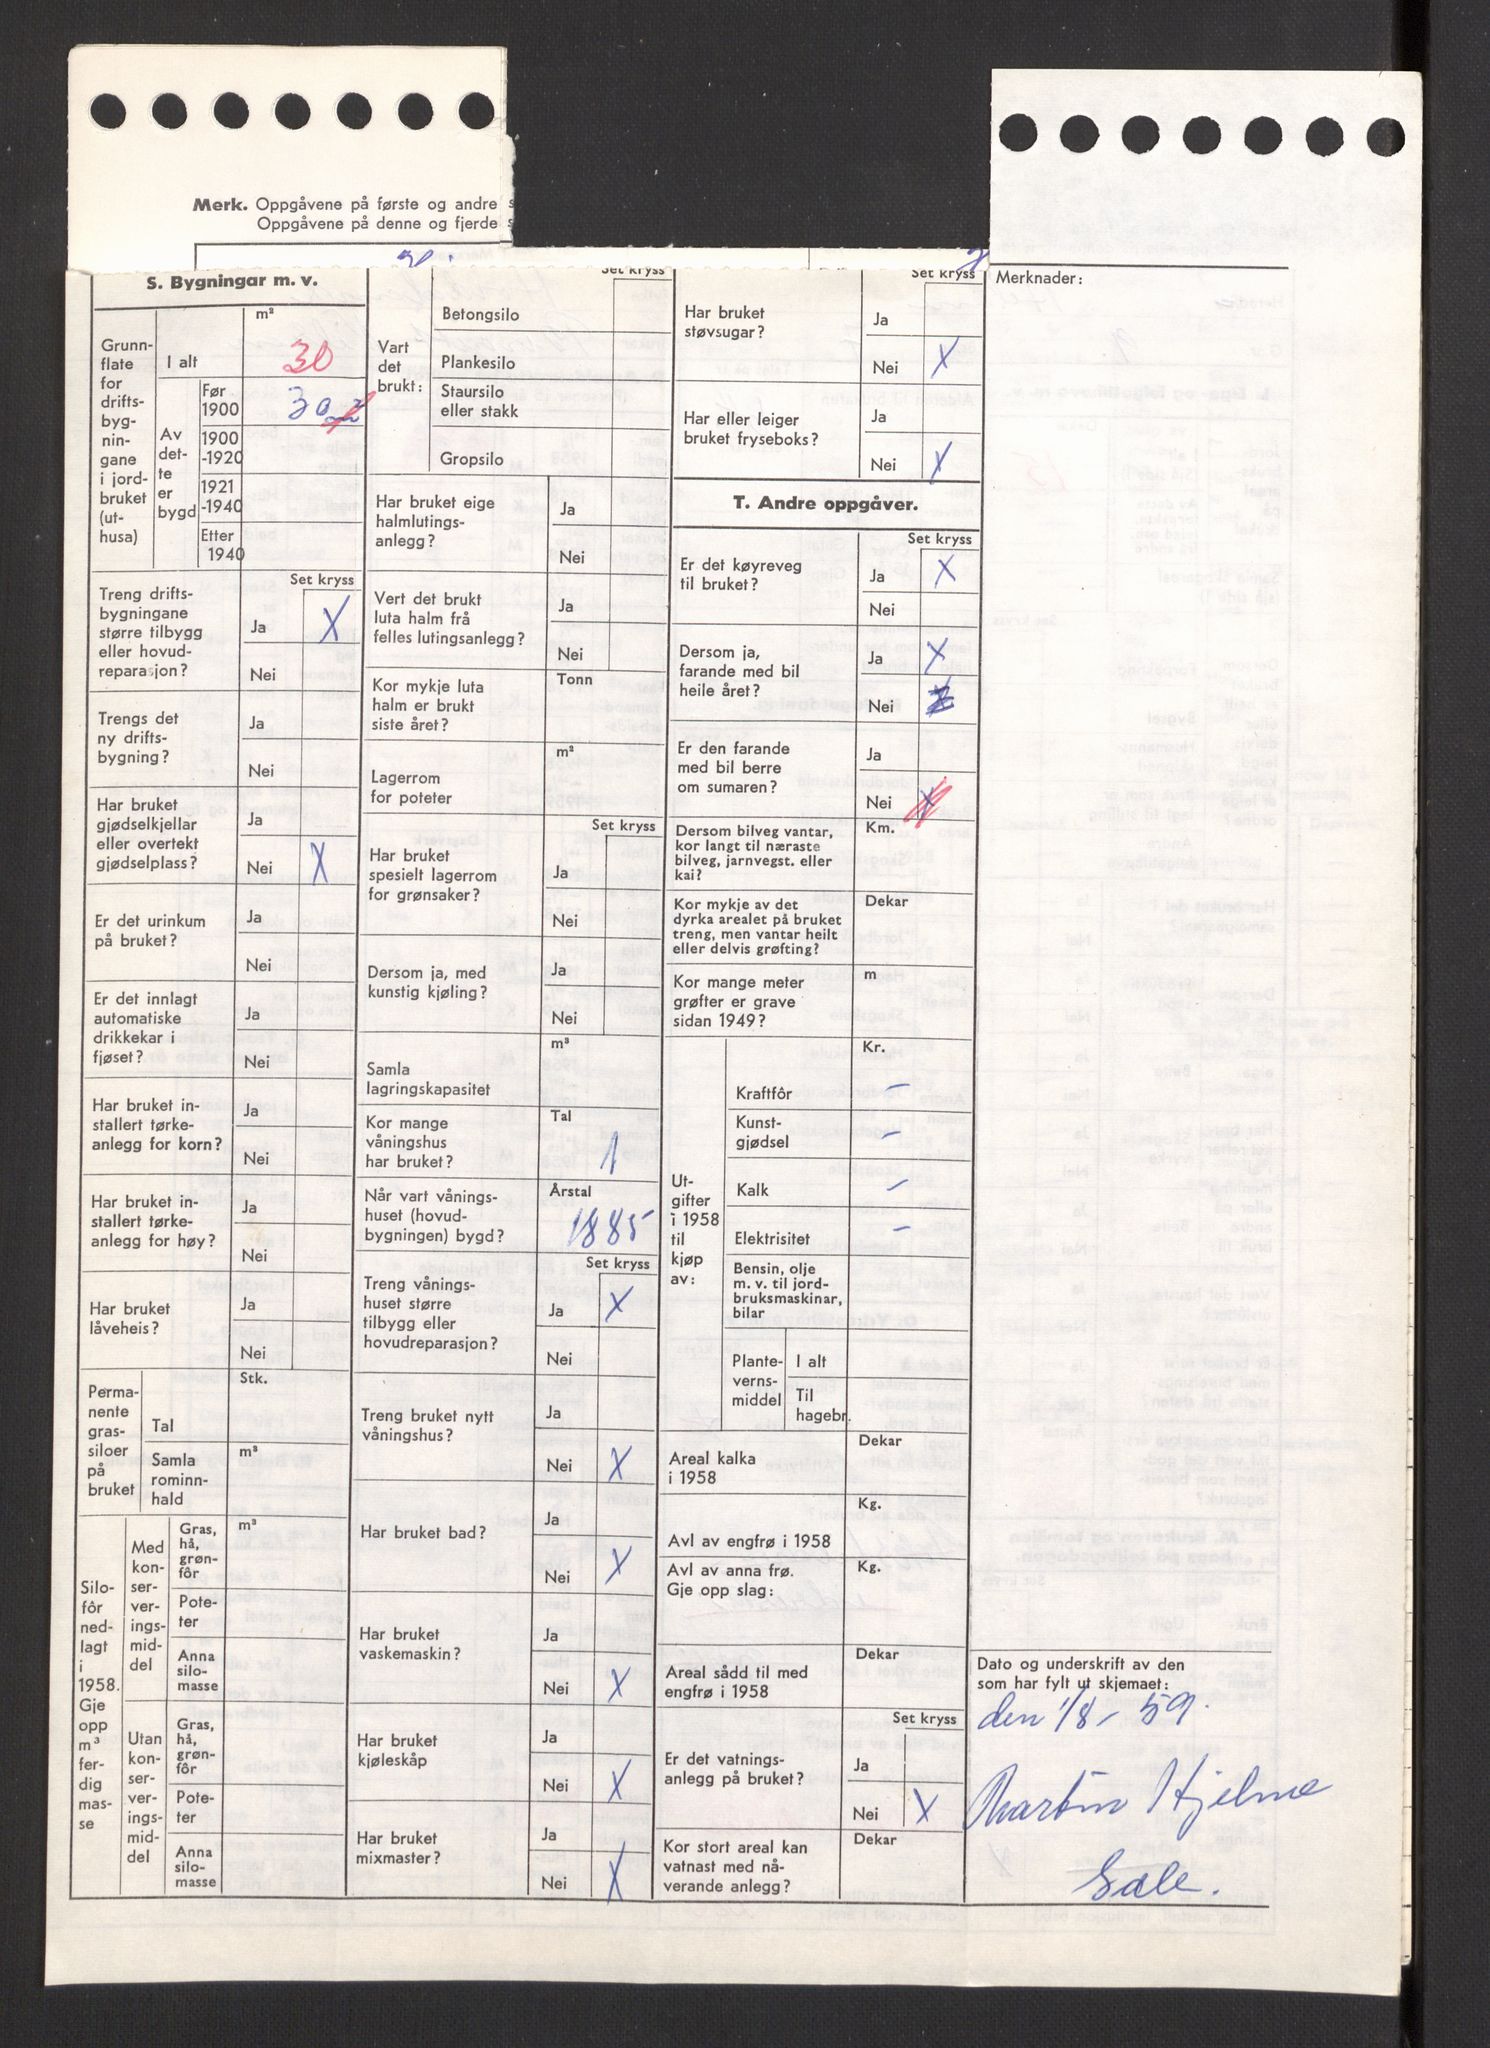 Merk. Oppgåvene på første og andre s
Oppgåvene på denne og fjerde s
S. Bygningar m. v.
m²
Grunn-
flate
for
drifts-
byg-
nin-
gane
i jord-
bruket
(ut-
husa)
I alt
30
Av
det-
te
er
bygd
Før
1900
30 m²
1900
-1920
1921
-1940
Etter
1940
Set kryss
Treng drifts-
bygningane
større tilbygg
eller hovud-
reparasjon?
Ja X
Nei
Trengs det
ny drifts-
bygning?
Ja
Nei
Har bruket
gjødselkjellar
eller overtekt
gjødselplass?
Ja
Nei X
Er det urinkum
på bruket?
Ja
Nei
Er det innlagt
automatiske
drikkekar i
fjøset?
Ja
Nei
Har bruket in-
stallert tørke-
anlegg for korn?
Ja
Nei
Har bruket in-
stallert tørke-
anlegg for høy?
Ja
Nei
Har bruket
låveheis?
Ja
Nei
Perma-
nente
gras-
siloer
på
bruket
Stk.
Tal
m³
Samla
rominn-
hald
Silo-
fôr
ned-
lagt
i
1958.
Gje
opp
m³
fer-
dig
mas-
se
Med
kon-
ser-
ver-
ings-
mid-
del
m³
Gras,
hå,
grøn-
fôr
Pote-
ter
Anna
silo-
masse
Utan
kon-
ser-
ver-
ings-
mid-
del
Gras,
hå,
grøn-
fôr
Pote-
ter
Anna
silo-
masse
Set kryss
Vart
det
brukt:
Betongsilo
Plankesilo
Staursilo
eller stakk
Gropsilo
Har bruket eige
halmlutings-
anlegg?
Ja
Nei
Vert det brukt
luta halm frå
felles lutingsanlegg?
Ja
Nei
Kor mykje luta
halm er brukt
siste året?
Tonn
Lagerrom
for poteter
m²
Set kryss
Har bruket
spesielt lagerrom
for grønsaker?
Ja
Nei
Dersom ja, med
kunstig kjøling?
Ja
Nei
Samla
lagringskapasitet
m³
Kor mange
våningshus
har bruket?
Tal
1
Når vart vånings-
huset (hovud-
bygningen) bygd?
Årstal
1885
Set kryss
Treng vånings-
huset større
tilbygg eller
hovudreparasjon?
Ja X
Nei
Treng bruket nytt
våningshus?
Ja
Nei X
Har bruket bad?
Ja
Nei X
Har bruket
vaskemaskin?
Ja
Nei X
Har bruket
kjøleskåp
Ja
Nei X
Har bruket
mixmaster?
Ja
Nei X
Set kryss
Har bruket
støvsugar?
Ja
Nei X
Har eller leiger
bruket fryseboks?
Ja
Nei X
T. Andre oppgåver.
Set kryss
Er det køyreveg
til bruket?
Ja X
Nei
Dersom ja,
farande med bil
heile året?
Ja X
Nei X
Er den farande
med bil berre
om sumaren?
Ja
Nei X
Dersom bilveg vantar,
kor langt til næraste
bilveg, jarnvegst. eller
kai?
Km.
Kor mykje av det
dyrka arealet på bruket
treng, men vantar heilt
eller delvis grøfting?
Dekar
Kor mange meter
grøfter er grave
sidan 1949?
m
Ut-
gifter
i 1958
til
kjøp
av:
Kr.
Kraftfôr –
Kunst-
gjødsel –
Kalk –
Elektrisitet –
Bensin, olje
m. v. til jord-
bruksmaskinar,
bilar
Plante-
verns-
middel
I alt
Til
hagebr.
Areal kalka
i 1958
Dekar
Avl av engfrø i 1958
Kg.
Avl av anna frø.
Gje opp slag:
Kg.
Areal sådd til med
engfrø i 1958
Dekar
Set kryss
Er det vatnings-
anlegg på bruket?
Ja
Nei X
Kor stort areal kan
vatnast med nå-
verande anlegg?
Dekar
Merknader:
Dato og underskrift av den
som har fylt ut skjemaet:
den 1/8 - 59.
Martin Hjelme